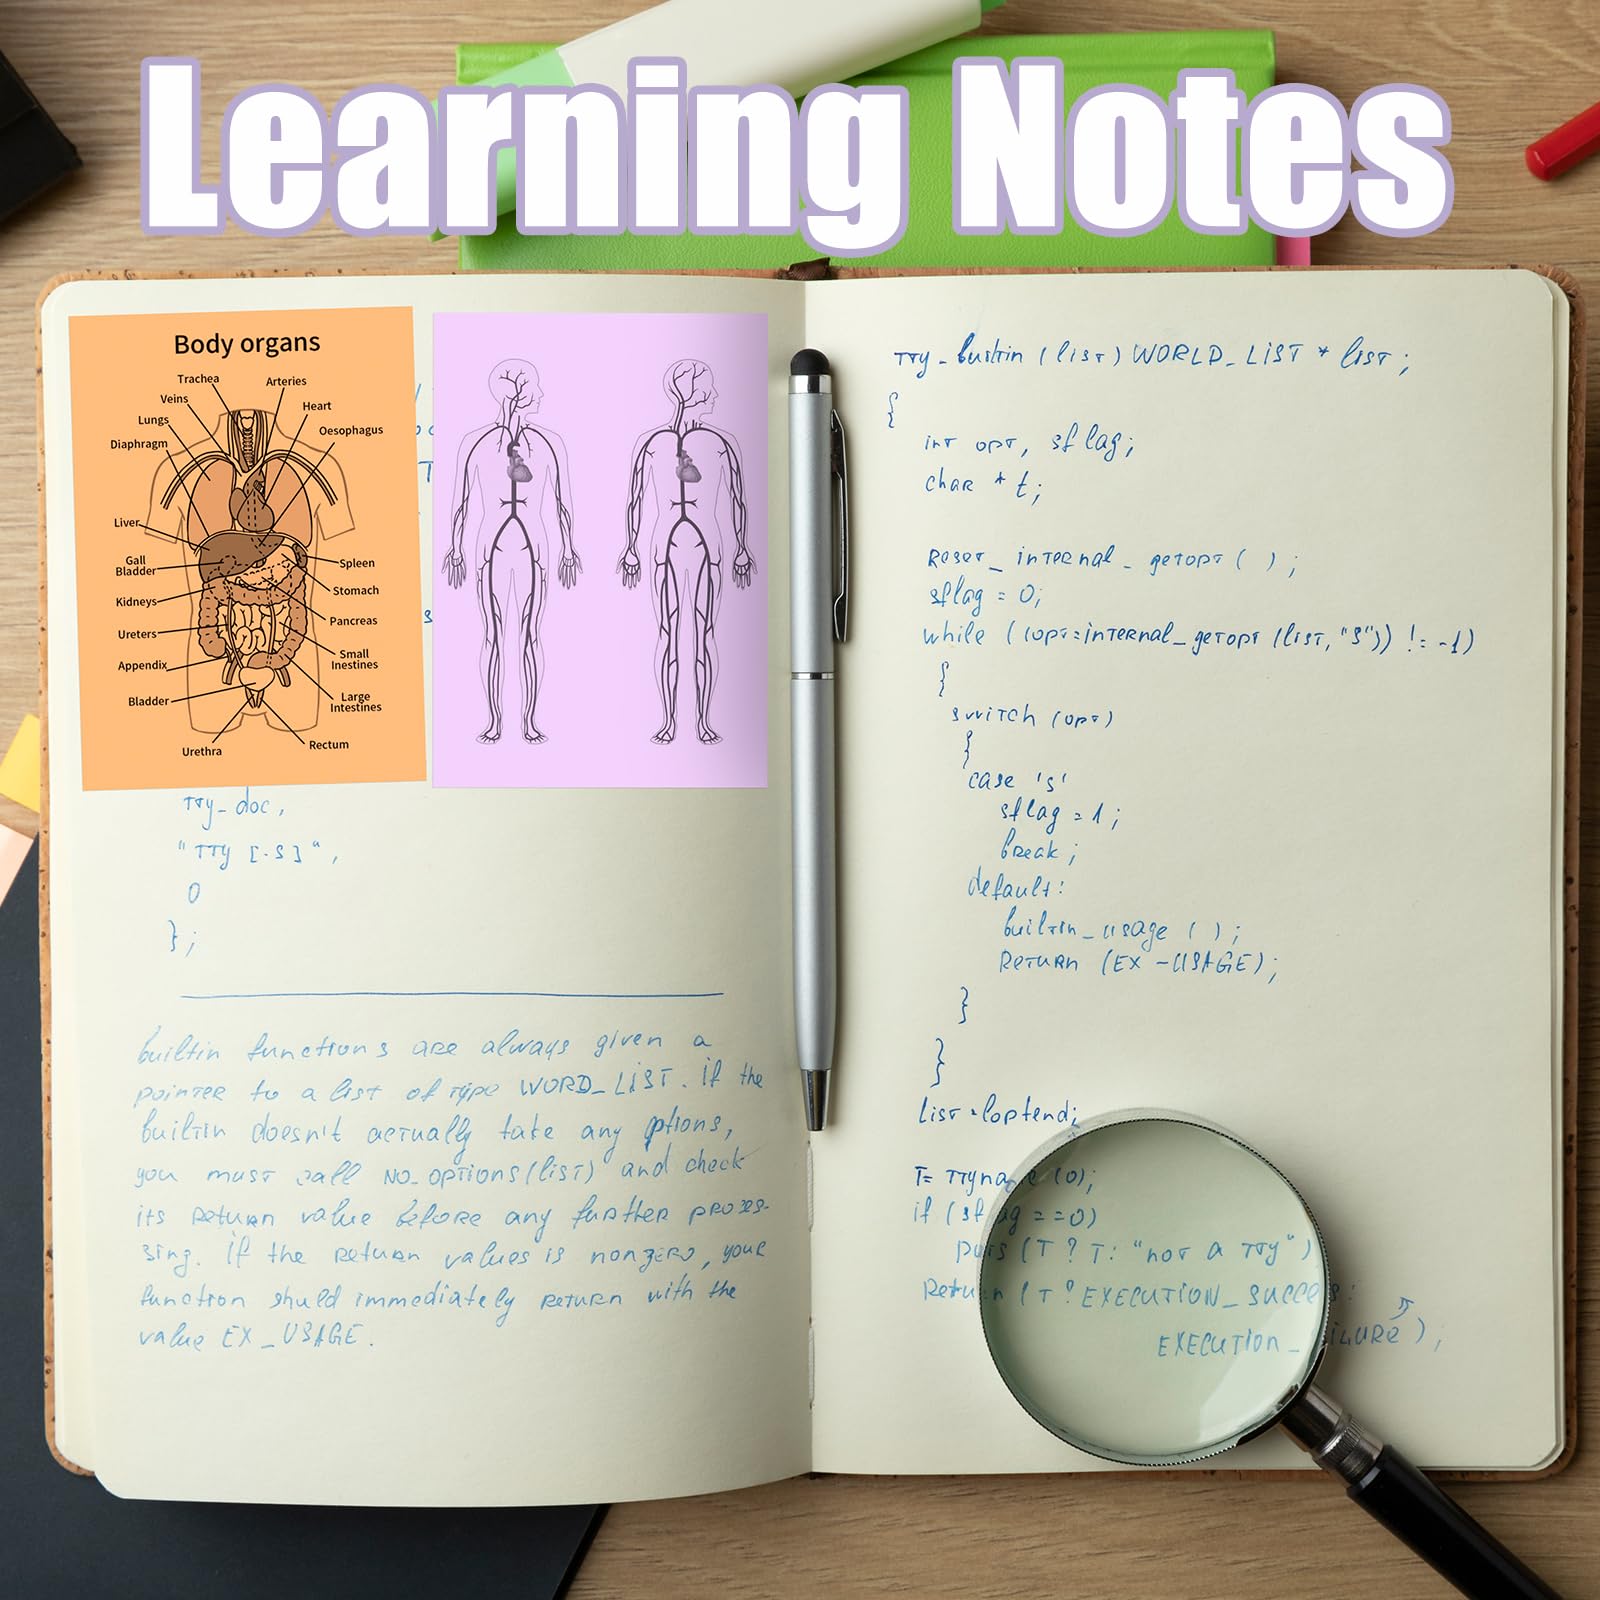 Learning Notes
Body organs
Trachea
Arteries
Veins
Heart
Lungs
Oesophagus
Diaphragm
Liver
Gall
Bladder
Spleen
Stomach
Kidneys
Pancreas
Ureters
Small
Inestines
Appendix
Large
Intestines
Bladder
Urethra
Rectum
TTy_doc,
"TTY [-S]",
0
};
builtin functions are always given a
pointer to a list of type WORD_LIST. if the
builtin doesn't actually take any options,
you must call NO_OPTIONS(list) and check
its return value before any further proces-
sing. if the return values is nonzero, your
function shuld immediately return with the
value EX_USAGE.
TTy_builtin (list) WORLD_LIST * list;
{
int opt, sflag;
char * t;
Reset_internal_getopt ( );
sflag = 0;
while ((opt=internal_getopt (list, "S")) != -1)
{
switch (opt)
{
case 's'
sflag = 1;
break;
default:
builtin_usage ( );
Return (EX-USAGE);
}
}
list = loptend;
T= TTyname (0);
if (sflag ==0)
puts (T ? T: "not a TTy")
Return (T ? EXECUTION_SUCCESS:
EXECUTION_FAILURE);